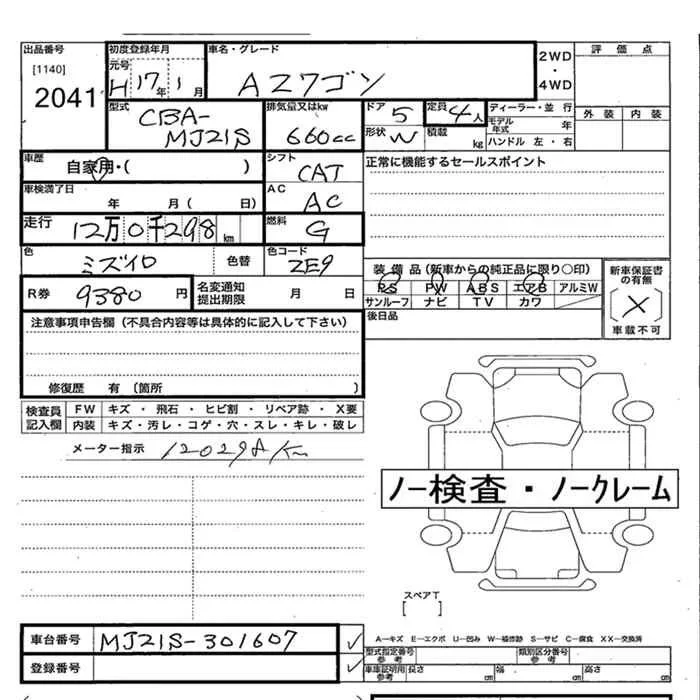 出品番号 初度登録年月 車名・グレード 2WD・4WD 評価点
[1140] 元号
2041 H17年1月 AZワゴン
型式 排気量又はkw ドア 5 定員 4人 ディーラー・並行
CBA-MJ21S 660cc 形状 W 積載 kg モデル年式 年 ハンドル 左・右 外装 内装
車歴 自家用・( ) シフト CAT 正常に機能するセールスポイント
車検満了日 年 月( 日) AC AC
走行 12万0千298km 燃料 G
色 ミズイロ 色替 色コード ZE9
装備品(新車からの純正品に限り○印) 新車保証書の有無
R券 9380円 名変通知提出期限 月 日 PS PW ABS エアB アルミW
サンルーフ ナビ TV カワ (×)
注意事項申告欄(不具合内容等は具体的に記入して下さい) 後日品 車載不可
修復歴 有(箇所 )
検査員記入欄 FW キズ・飛石・ヒビ割・リペア跡・X要
内装 キズ・汚レ・コゲ・穴・スレ・キレ・破レ
メーター指示 120298Km
ノー検査・ノークレーム
スペアT
[ ]
車台番号 MJ21S-301607 ✓ A-キズ E-エクボ U-凹み W-補修跡 S-サビ C-腐食 XX-交換済
登録番号 ✓ 型式指定番号 参考 類別区分番号 参考
車庫証明用 参考 長さ cm 幅 cm 高さ cm